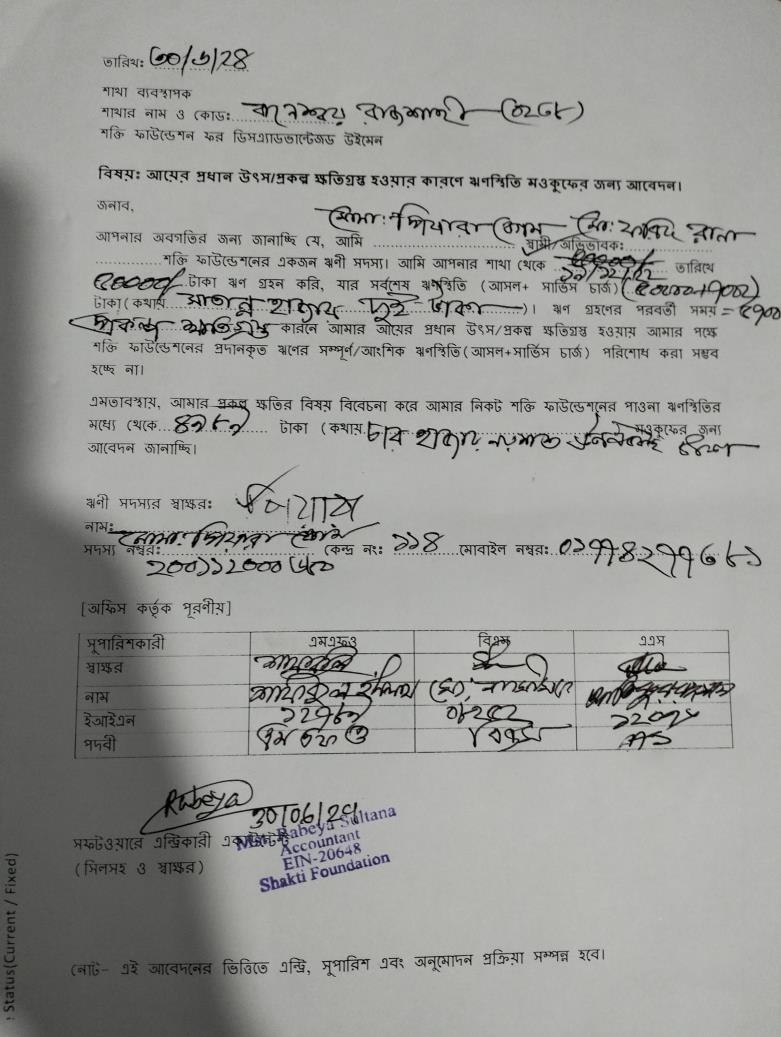 তারিখ: ৩০/৬/২৪
শাখা ব্যবস্থাপক
শাখার নাম ও কোড: বানেশ্বর রাজশাহী (০২৫৮)
শক্তি ফাউন্ডেশন ফর ডিসএ্যাডভান্টেজড উইমেন
বিষয়: আয়ের প্রধান উৎস/প্রকল্প ক্ষতিগ্রস্থ হওয়ার কারণে ঋণস্থিতি মওকুফের জন্য আবেদন।
জনাব,
আপনার অবগতির জন্য জানাচ্ছি যে, আমি মোসা: পিয়ারা বেগম স্বামী/অভিভাবক: মো: রানা
শক্তি ফাউন্ডেশনের একজন ঋনী সদস্য। আমি আপনার শাখা থেকে তারিখে
৫০০০০/ টাকা ঋণ গ্রহন করি, যার সর্বশেষ ঋণস্থিতি (আসল+ সার্ভিস চার্জ)
টাকা(কথায় হাজার দুই টাকা )। ঋণ গ্রহণের পরবর্তী সময়
প্রকল্প ক্ষতিগ্রস্ত কারনে আমার আয়ের প্রধান উৎস/প্রকল্প ক্ষতিগ্রস্থ হওয়ায় আমার পক্ষে
শক্তি ফাউন্ডেশনের প্রদানকৃত ঋনের সম্পূর্ন/আংশিক ঋণস্থিতি(আসল+সার্ভিস চার্জ) পরিশোধ করা সম্ভব
হচ্ছে না।
এমতাবস্থায়, আমার প্রকল্প ক্ষতির বিষয় বিবেচনা করে আমার নিকট শক্তি ফাউন্ডেশনের পাওনা ঋনস্থিতির
মধ্যে থেকে ৪৯৮৯ টাকা (কথায় চার হাজার নয়শত মওকুফের জন্য
আবেদন জানাচ্ছি।
ঋনী সদস্যর স্বাক্ষর: পিয়ারা
নাম: মোসা: পিয়ারা বেগম
সদস্য নম্বর: কেন্দ্র নং: ১১৪ মোবাইল নম্বর:
[অফিস কর্তৃক পূরণীয়]
সুপারিশকারী এমএফও বিএম এএস
স্বাক্ষর
নাম
ইআইএন
পদবী এম এফ ও বিএম AS
Rabeya 30/06/24
সফটওয়্যারে এন্ট্রিকারী একাউন্টেন্ট
(সিলসহ ও স্বাক্ষর)
Rabeya Sultana
Accountant
EIN-20648
Shakti Foundation
নোট- এই আবেদনের ভিত্তিতে এন্ট্রি, সুপারিশ এবং অনুমোদন প্রক্রিয়া সম্পন্ন হবে।
Status(Current / Fixed)